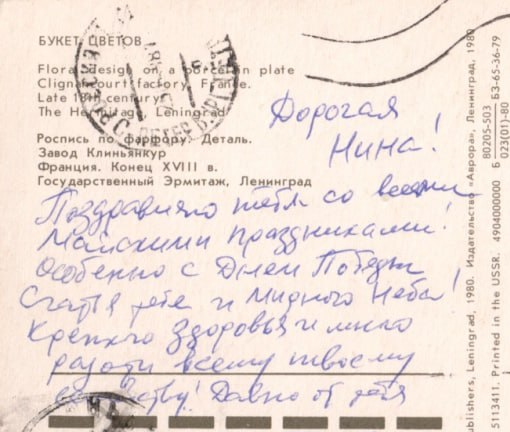 БУКЕТ ЦВЕТОВ
Floral design on a porcelain plate
Clignancourt factory. France.
Late 18th century
The Hermitage, Leningrad
Роспись по фарфору. Деталь.
Завод Клиньянкур
Франция. Конец XVIII в.
Государственный Эрмитаж, Ленинград
Дорогая
Нина!
Поздравляю тебя со всеми
Майскими праздниками!
Особенно с Днём Победы!
Счастья тебе и Мирного Неба!
Крепкого здоровья и много
радости всему твоему
Давно от тебя
ublishers, Leningrad, 1980. Издательство «Аврора», Ленинград, 1980
5113411. Printed in the USSR. 4904000000 Б 80205-503 / 023(01)-80 БЗ-65-36-79